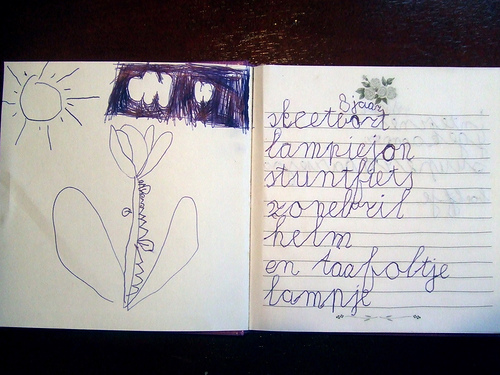 8 jaar
skeetbort
lampiejon
stuntfiets
zonebril
helm
en taafoltje
lampje